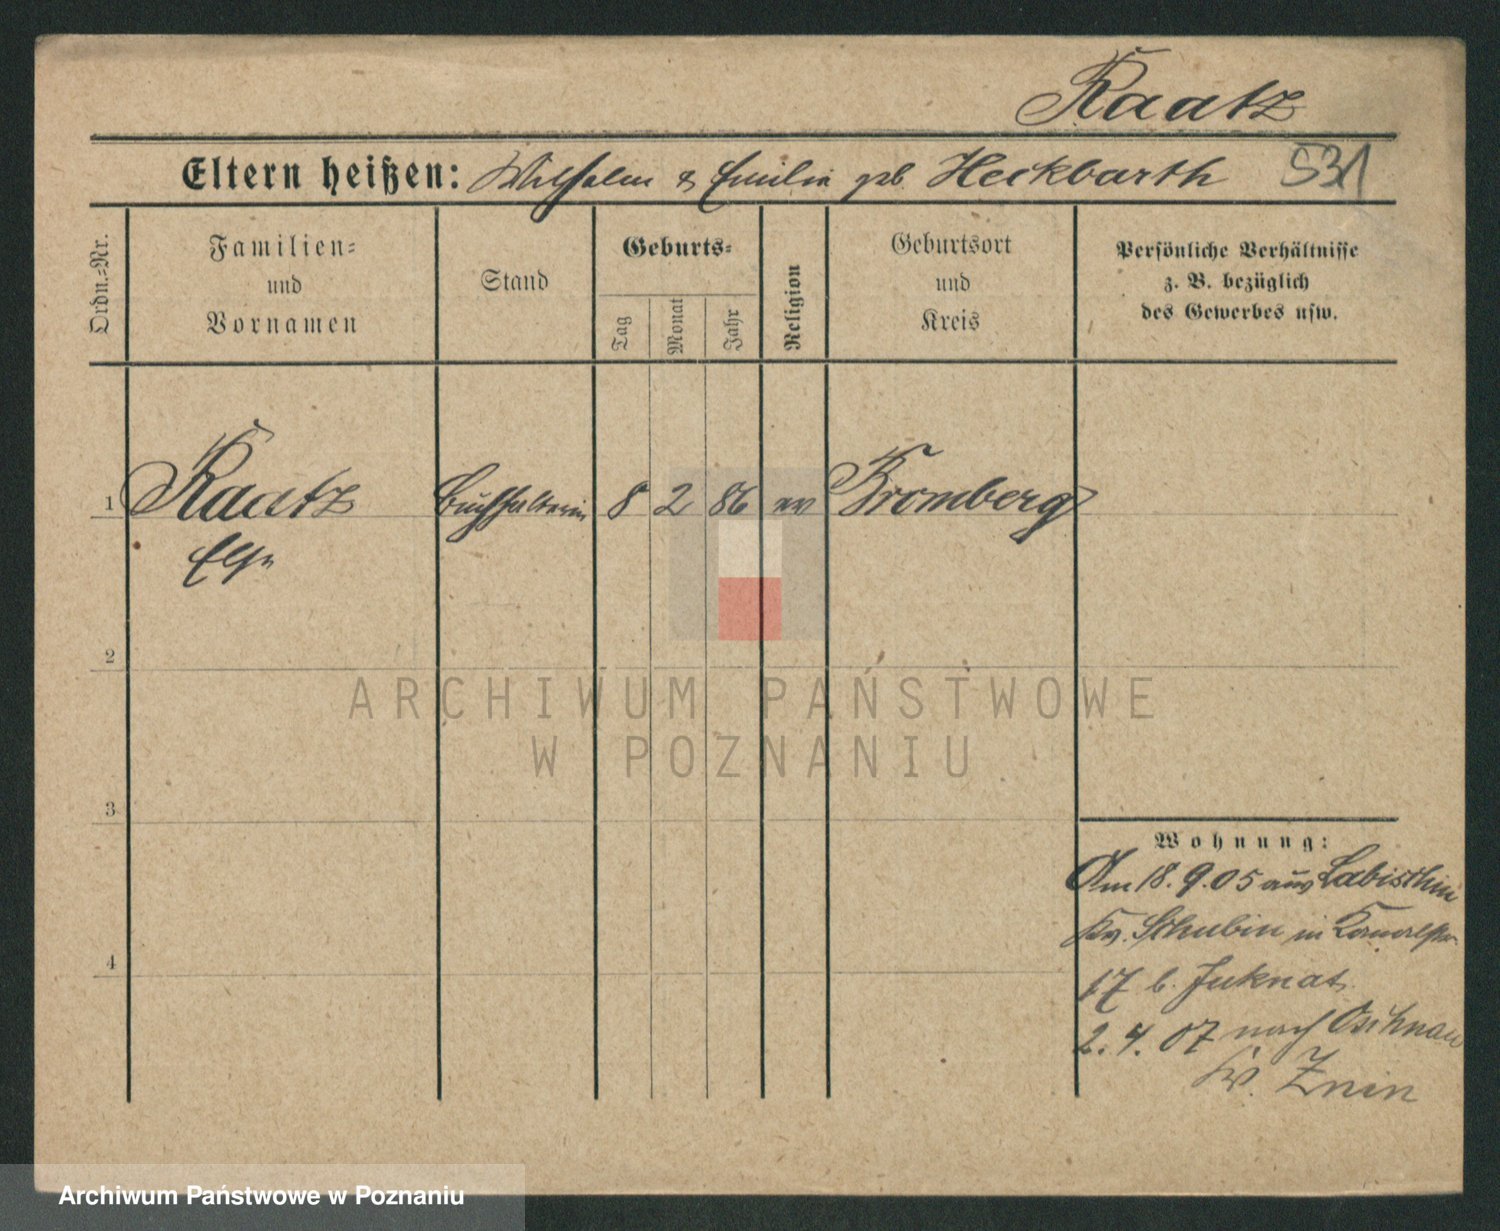 Kaatz
Eltern heißen: Wilhelm & Emilie geb. Heckbarth 531
Ordn.=Nr.
Familien=
und
Vornamen
Stand
Geburts=
Tag
Monat
Jahr
Religion
Geburtsort
und
Kreis
Persönliche Verhältnisse
z. B. bezüglich
des Gewerbes usw.
1 Kaatz Buchhalterin 8 2 86 ev Bromberg
Else
2
ARCHIWUM PAŃSTWOWE
W POZNANIU
3
Wohnung:
Am 18.9.05 aus Labischin
Kr. Schubin in
4
17 b. Juknat
2.4.07 nach
Kr. Znin
Archiwum Państwowe w Poznaniu